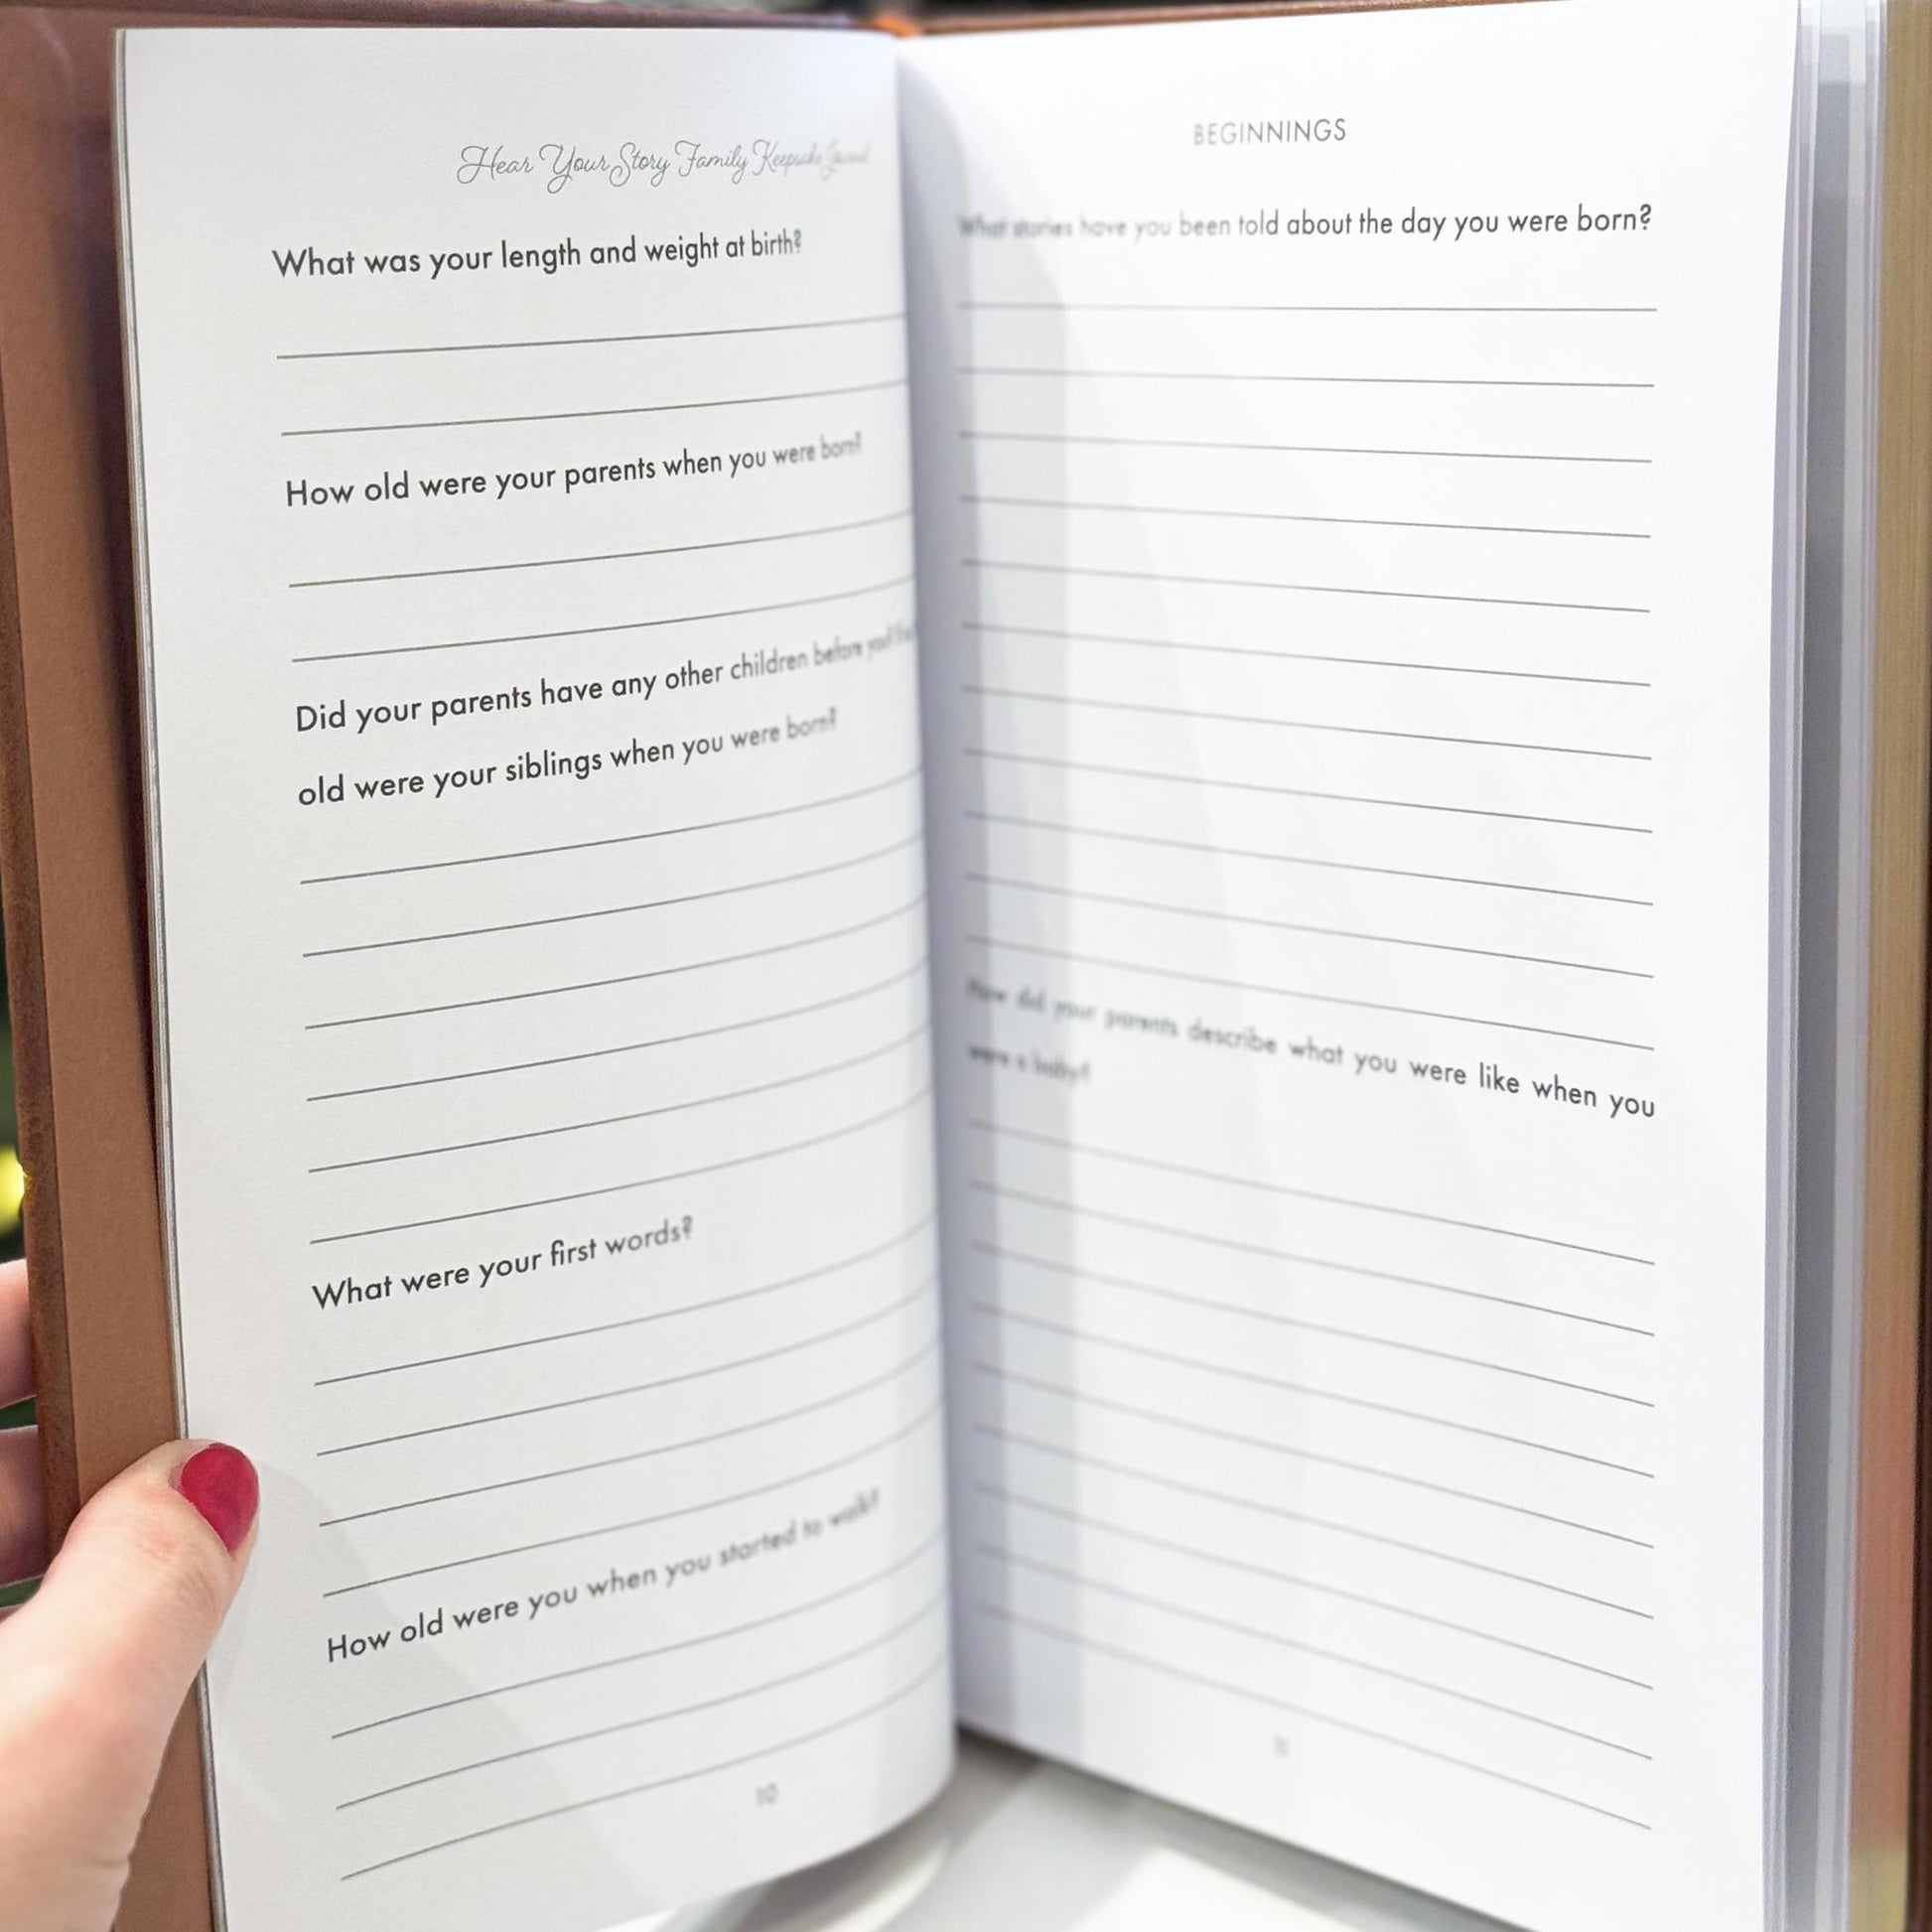 Hear Your Story Family Keepsake Journal
What was your length and weight at birth?
How old were your parents when you were born?
Did your parents have any other children before you?
old were your siblings when you were born?
What were your first words?
How old were you when you started to walk?
10
BEGINNINGS
What stories have you been told about the day you were born?
How did your parents describe what you were like when you
were a baby?